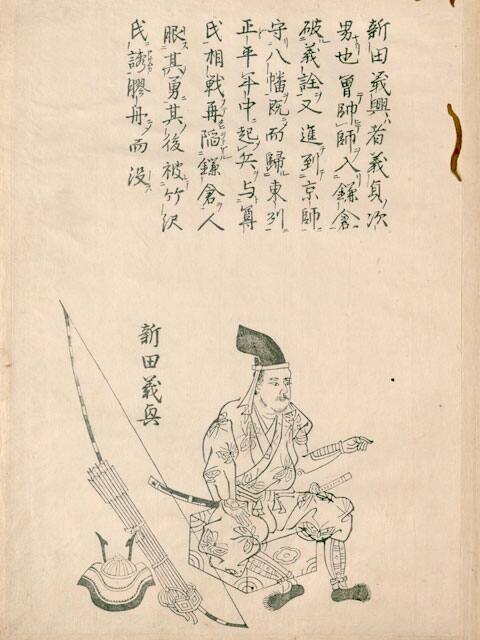 新田義興者義貞次
男也曽帥師入鎌倉
破義詮又進到京師
守八幡既而歸東州
正平年中起兵与尊
氏相戦再陥鎌倉人
服其勇其後被竹沢
氏誘膠舟而没
新田義興